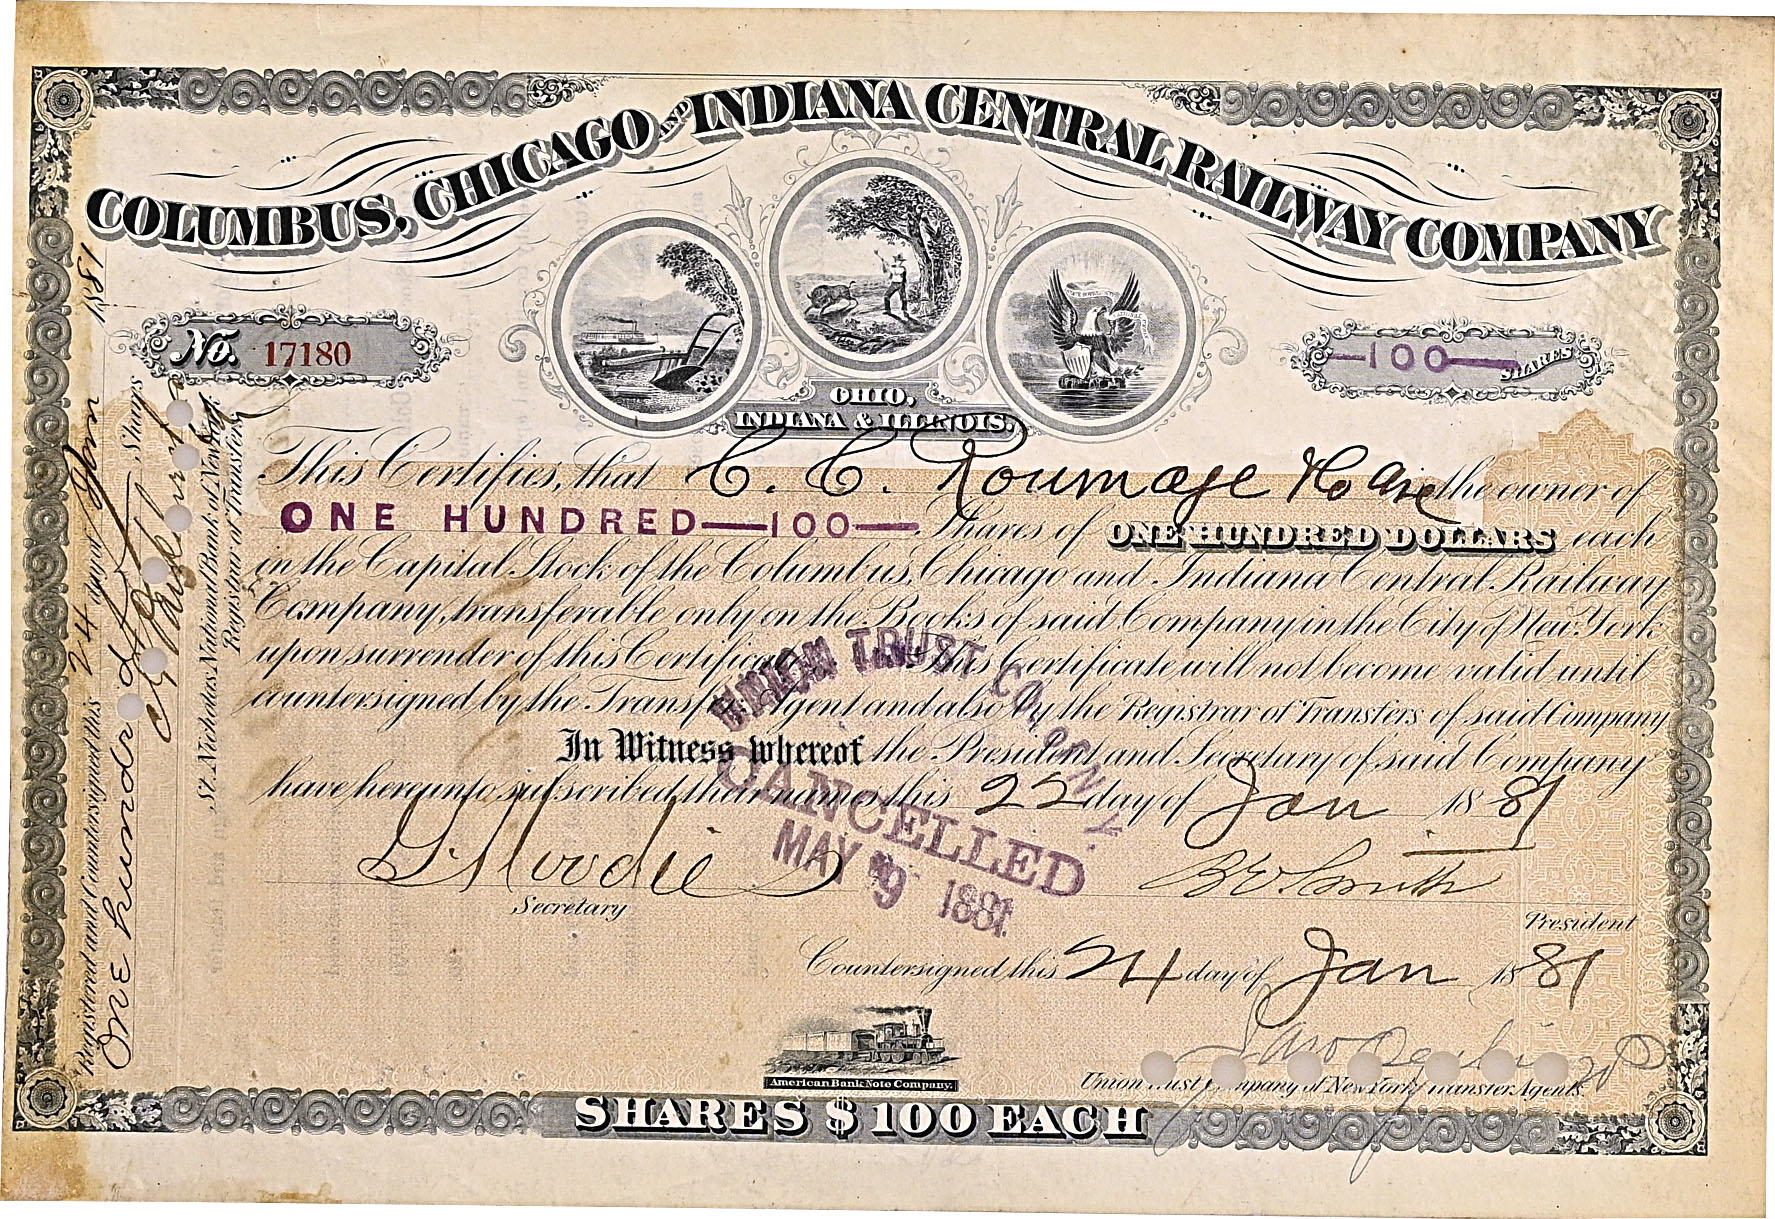 COLUMBUS, CHICAGO AND INDIANA CENTRAL RAILWAY COMPANY
No. 17180
—100— SHARES
OHIO,
INDIANA & ILLINOIS.
This Certifies, that C. C. the owner of
ONE HUNDRED—100— Shares of ONE HUNDRED DOLLARS each
in the Capital Stock of the Columbus, Chicago and Indiana Central Railway
Company, transferable only on the Books of said Company in the City of New York
upon surrender of this Certificate. This Certificate will not become valid until
countersigned by the Transfer Agent and also by the Registrar of Transfers of said Company
In Witness whereof the President and Secretary of said Company
have hereunto subscribed their names this 22 day of Jan 1881
B E Smith
Secretary
President
UNION TRUST CO. OF N.Y.
CANCELLED
MAY 9 1881
Countersigned this 24 day of Jan 1881
Union Trust Company of New York, Transfer Agents.
American Bank Note Company.
SHARES $100 EACH
Registered and Countersigned this 24 day of Jan 1881
One hundred Shares
St. Nicholas National Bank of New York
Registrar of Transfers